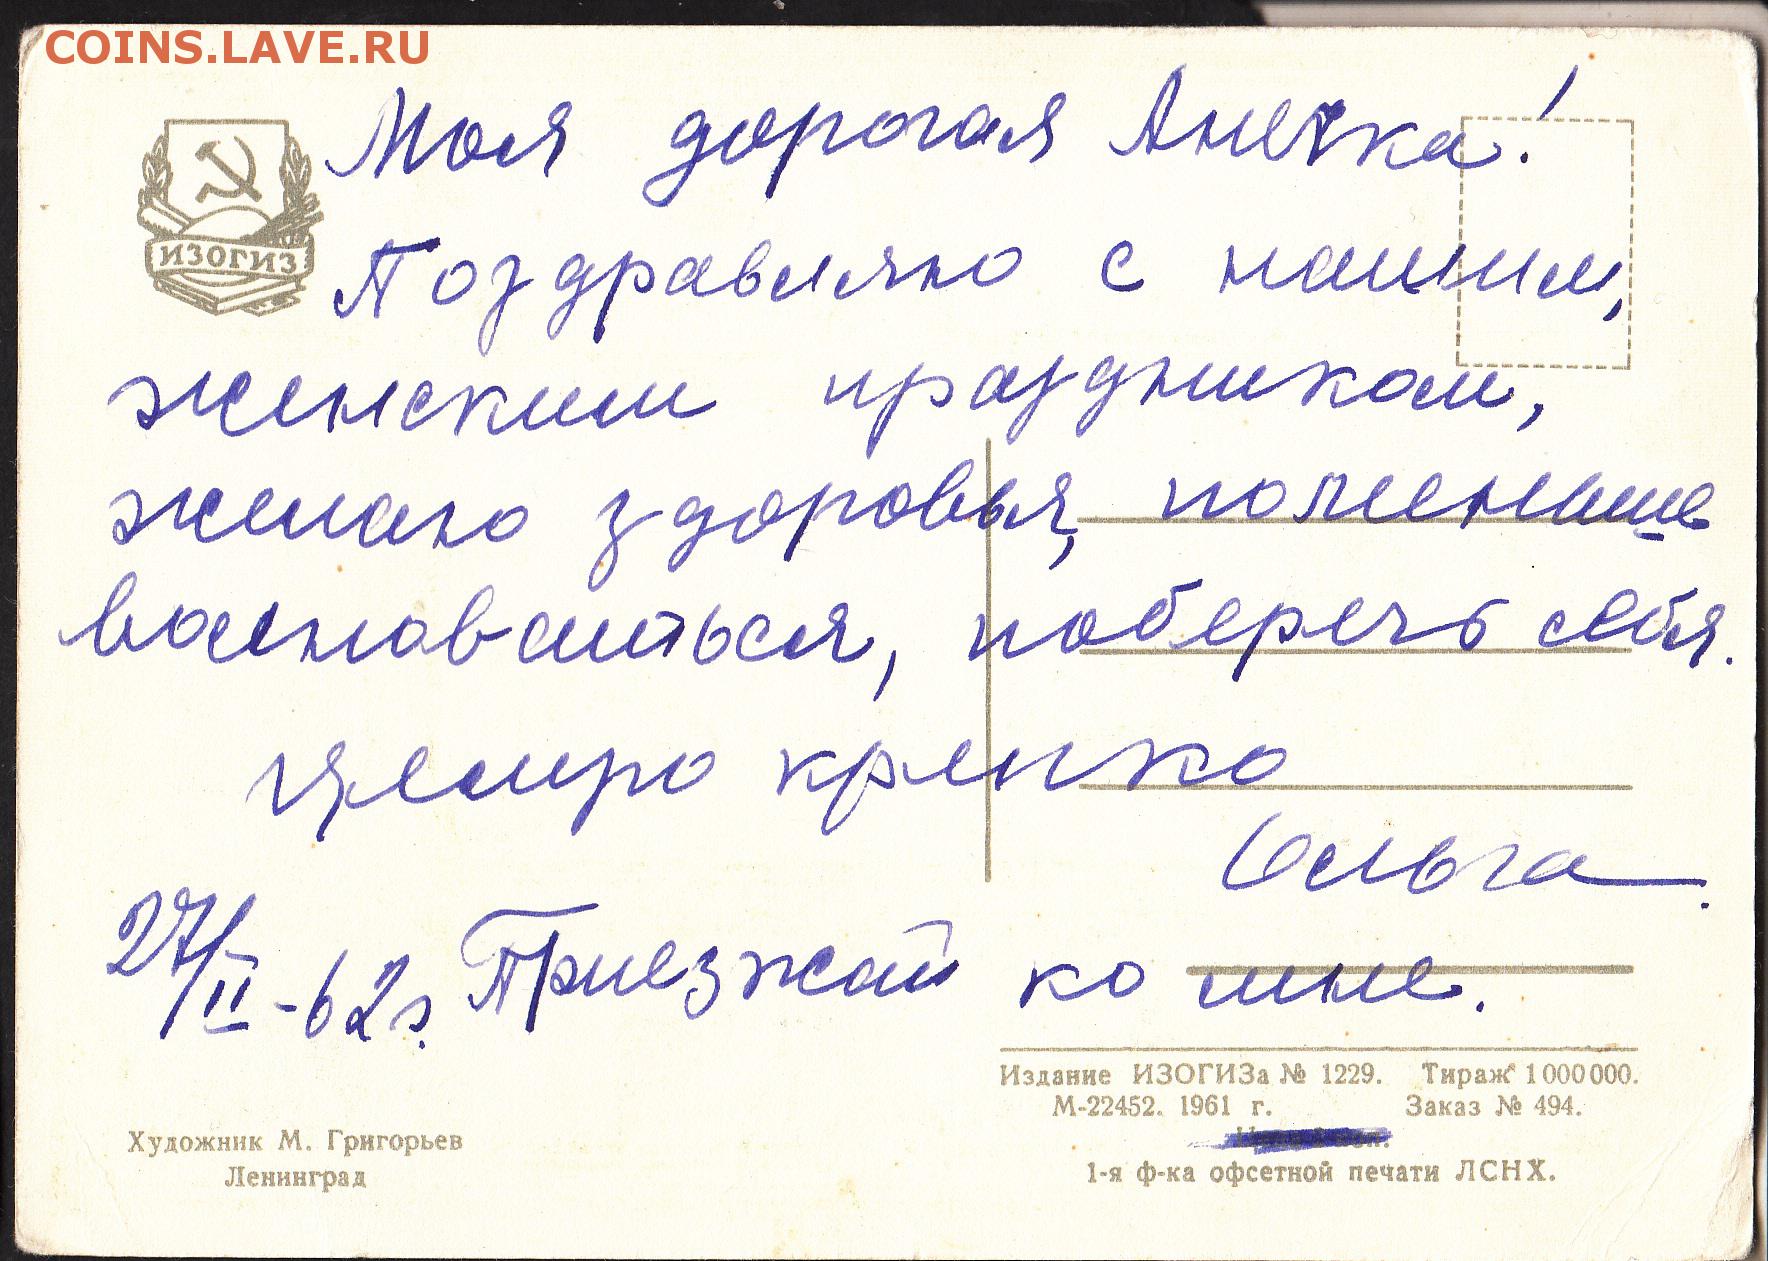 COINS.LAVE.RU
ИЗОГИЗ
Моя дорогая Анечка!
Поздравляю с нашим,
женским праздником,
желаю здоровья, поменьше
волноваться, поберечь себя.
Целую крепко
Ольга.
27/II-62г. Приезжай ко мне.
Издание ИЗОГИЗа № 1229. Тираж 1000000.
М-22452. 1961 г. Заказ № 494.
1-я ф-ка офсетной печати ЛСНХ.
Художник М. Григорьев
Ленинград